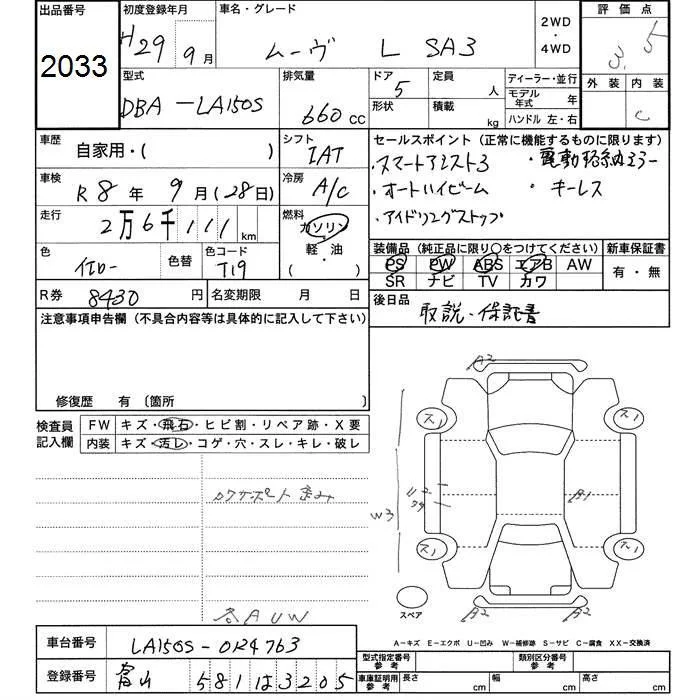 出品番号 初度登録年月 車名・グレード 2WD・4WD 評価点
2033 H29年 9月 ムーヴ L SA3 3.5
型式 排気量 ドア 定員 人 ディーラー・並行 外装 内装
DBA-LA150S 660cc 5 形状 積載 kg モデル年式 年 ハンドル 左・右 C
車歴 自家用・( ) シフト IAT セールスポイント (正常に機能するものに限ります)
スマートアシスト3 ・電動格納ミラー
車検 R8年 9月 (28日) 冷房 A/C ・オートハイビーム ・キーレス
走行 2万6千111km 燃料 ガソリン・軽・油 ( ) ・アイドリングストップ
色 イエロー 色替 色コード T19 装備品 (純正品に限り○をつけてください) 新車保証書
PS PW ABS エアB AW 有・無
SR ナビ TV カワ
R券 8430円 名変期限 月 日 後日品
取説・保証書
注意事項申告欄 (不具合内容等は具体的に記入して下さい)
修復歴 有 〔箇所 〕
検査員記入欄 FW キズ・飛石・ヒビ割・リペア跡・X要
内装 キズ・汚レ・コゲ・穴・スレ・キレ・破レ
A2
ス1 ス1
U2 A1
W3
ス1 ス1
スペア A2 A2
各AUW
A-キズ E-エクボ U-凹み W-補修跡 S-サビ C-腐食 XX-交換済
車台番号 LA150S-0124763 型式指定番号 参考 類別区分番号 参考
登録番号 富山 581 は 3205 車庫証明用 参考 長さ cm 幅 cm 高さ cm